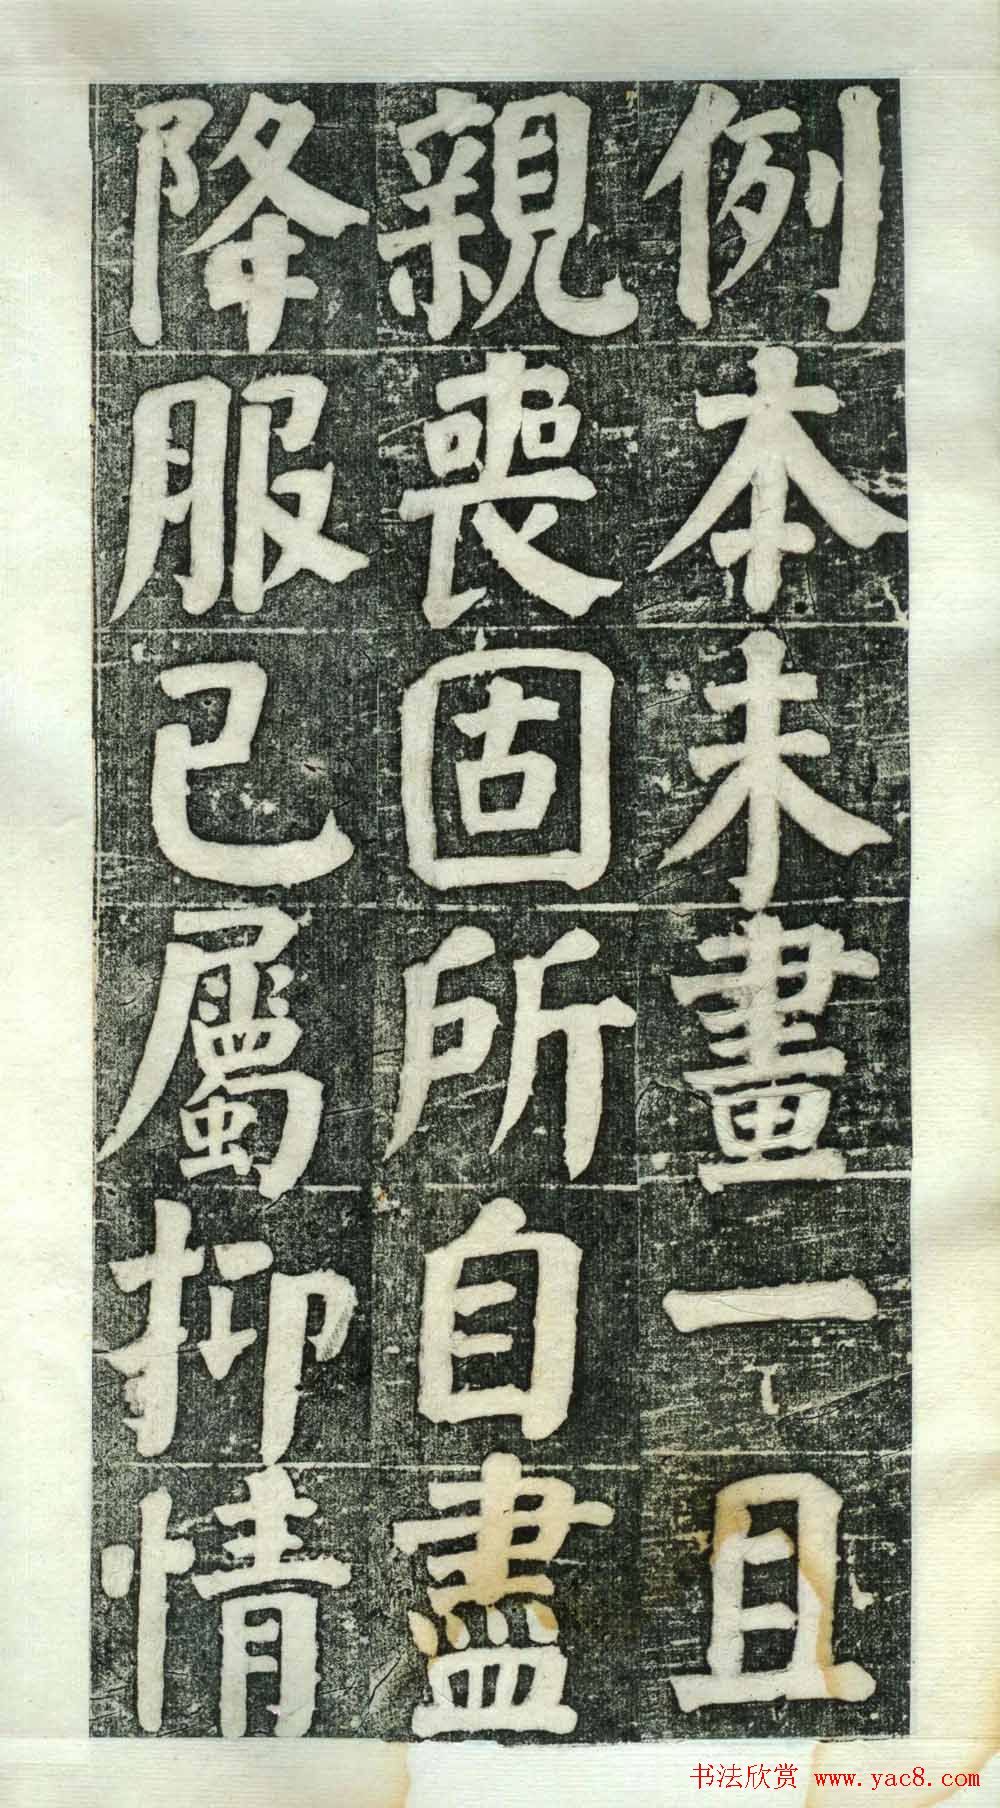 例本未畫一且
親喪固所自盡
降服已屬抑情
书法欣赏 www.yac8.com